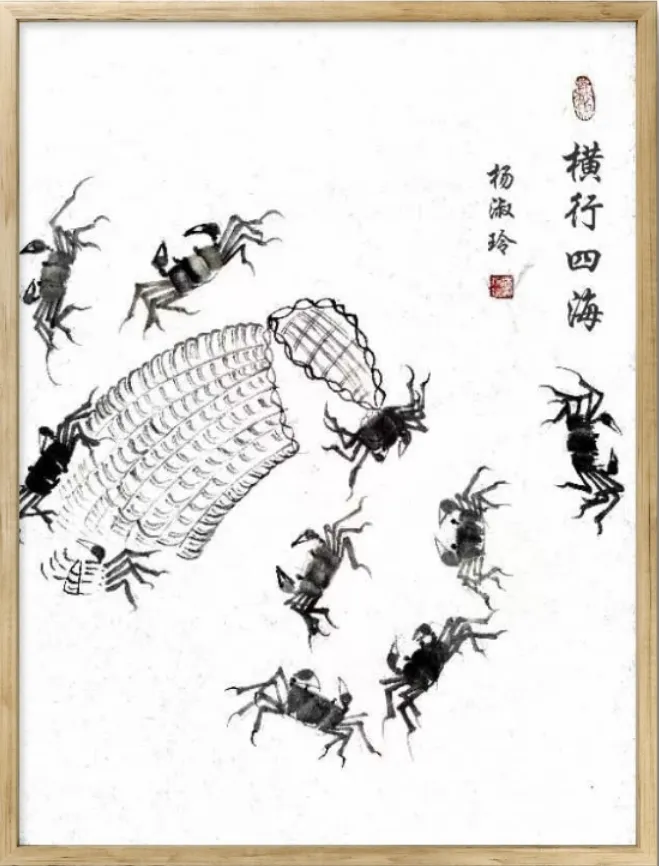 横行四海
杨淑玲